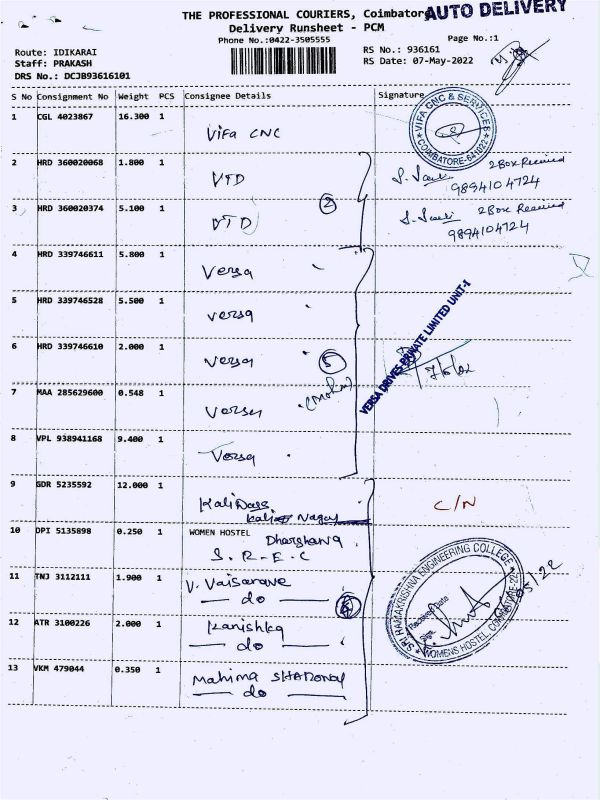 THE PROFESSIONAL COURIERS, Coimbatore
AUTO DELIVERY
Delivery Runsheet - PCM
Phone No.:0422-3505555
Page No.:1
Route: IDIKARAI
Staff: PRAKASH
DRS No.: DCJB93616101
RS No.: 936161
RS Date: 07-May-2022
S No Consignment No Weight PCS Consignee Details Signature
1 CGL 4023867 16.300 1 Vifa CNC
VIFA CNC & SERVICES
COIMBATORE-641022
2 HRD 360020068 1.800 1 VTD
2 Box Received
9894104724
3 HRD 360020374 5.100 1 VTD
2
2 Box Received
9894104724
4 HRD 339746611 5.800 1 Versa
5 HRD 339746528 5.500 1 versa
6 HRD 339746610 2.000 1 versa
5
VERSA DRIVES PRIVATE LIMITED UNIT-I
7 MAA 285629600 0.548 1 versa
8 VPL 938941168 9.400 1 Versa
9 GDR 5235592 12.000 1 KaliDass
Nagar
C/N
10 DPI 5135898 0.250 1 WOMEN HOSTEL
Dharshana
S.R.E.C
11 TNJ 3112111 1.900 1 V. Vaisarave
do
12 ATR 3100226 2.000 1 Kanishka
do
13 VKM 479044 0.350 1 Mahima
do
SRI RAMAKRISHNA ENGINEERING COLLEGE
Received Date
Sign.
WOMENS HOSTEL COIMBATORE-22